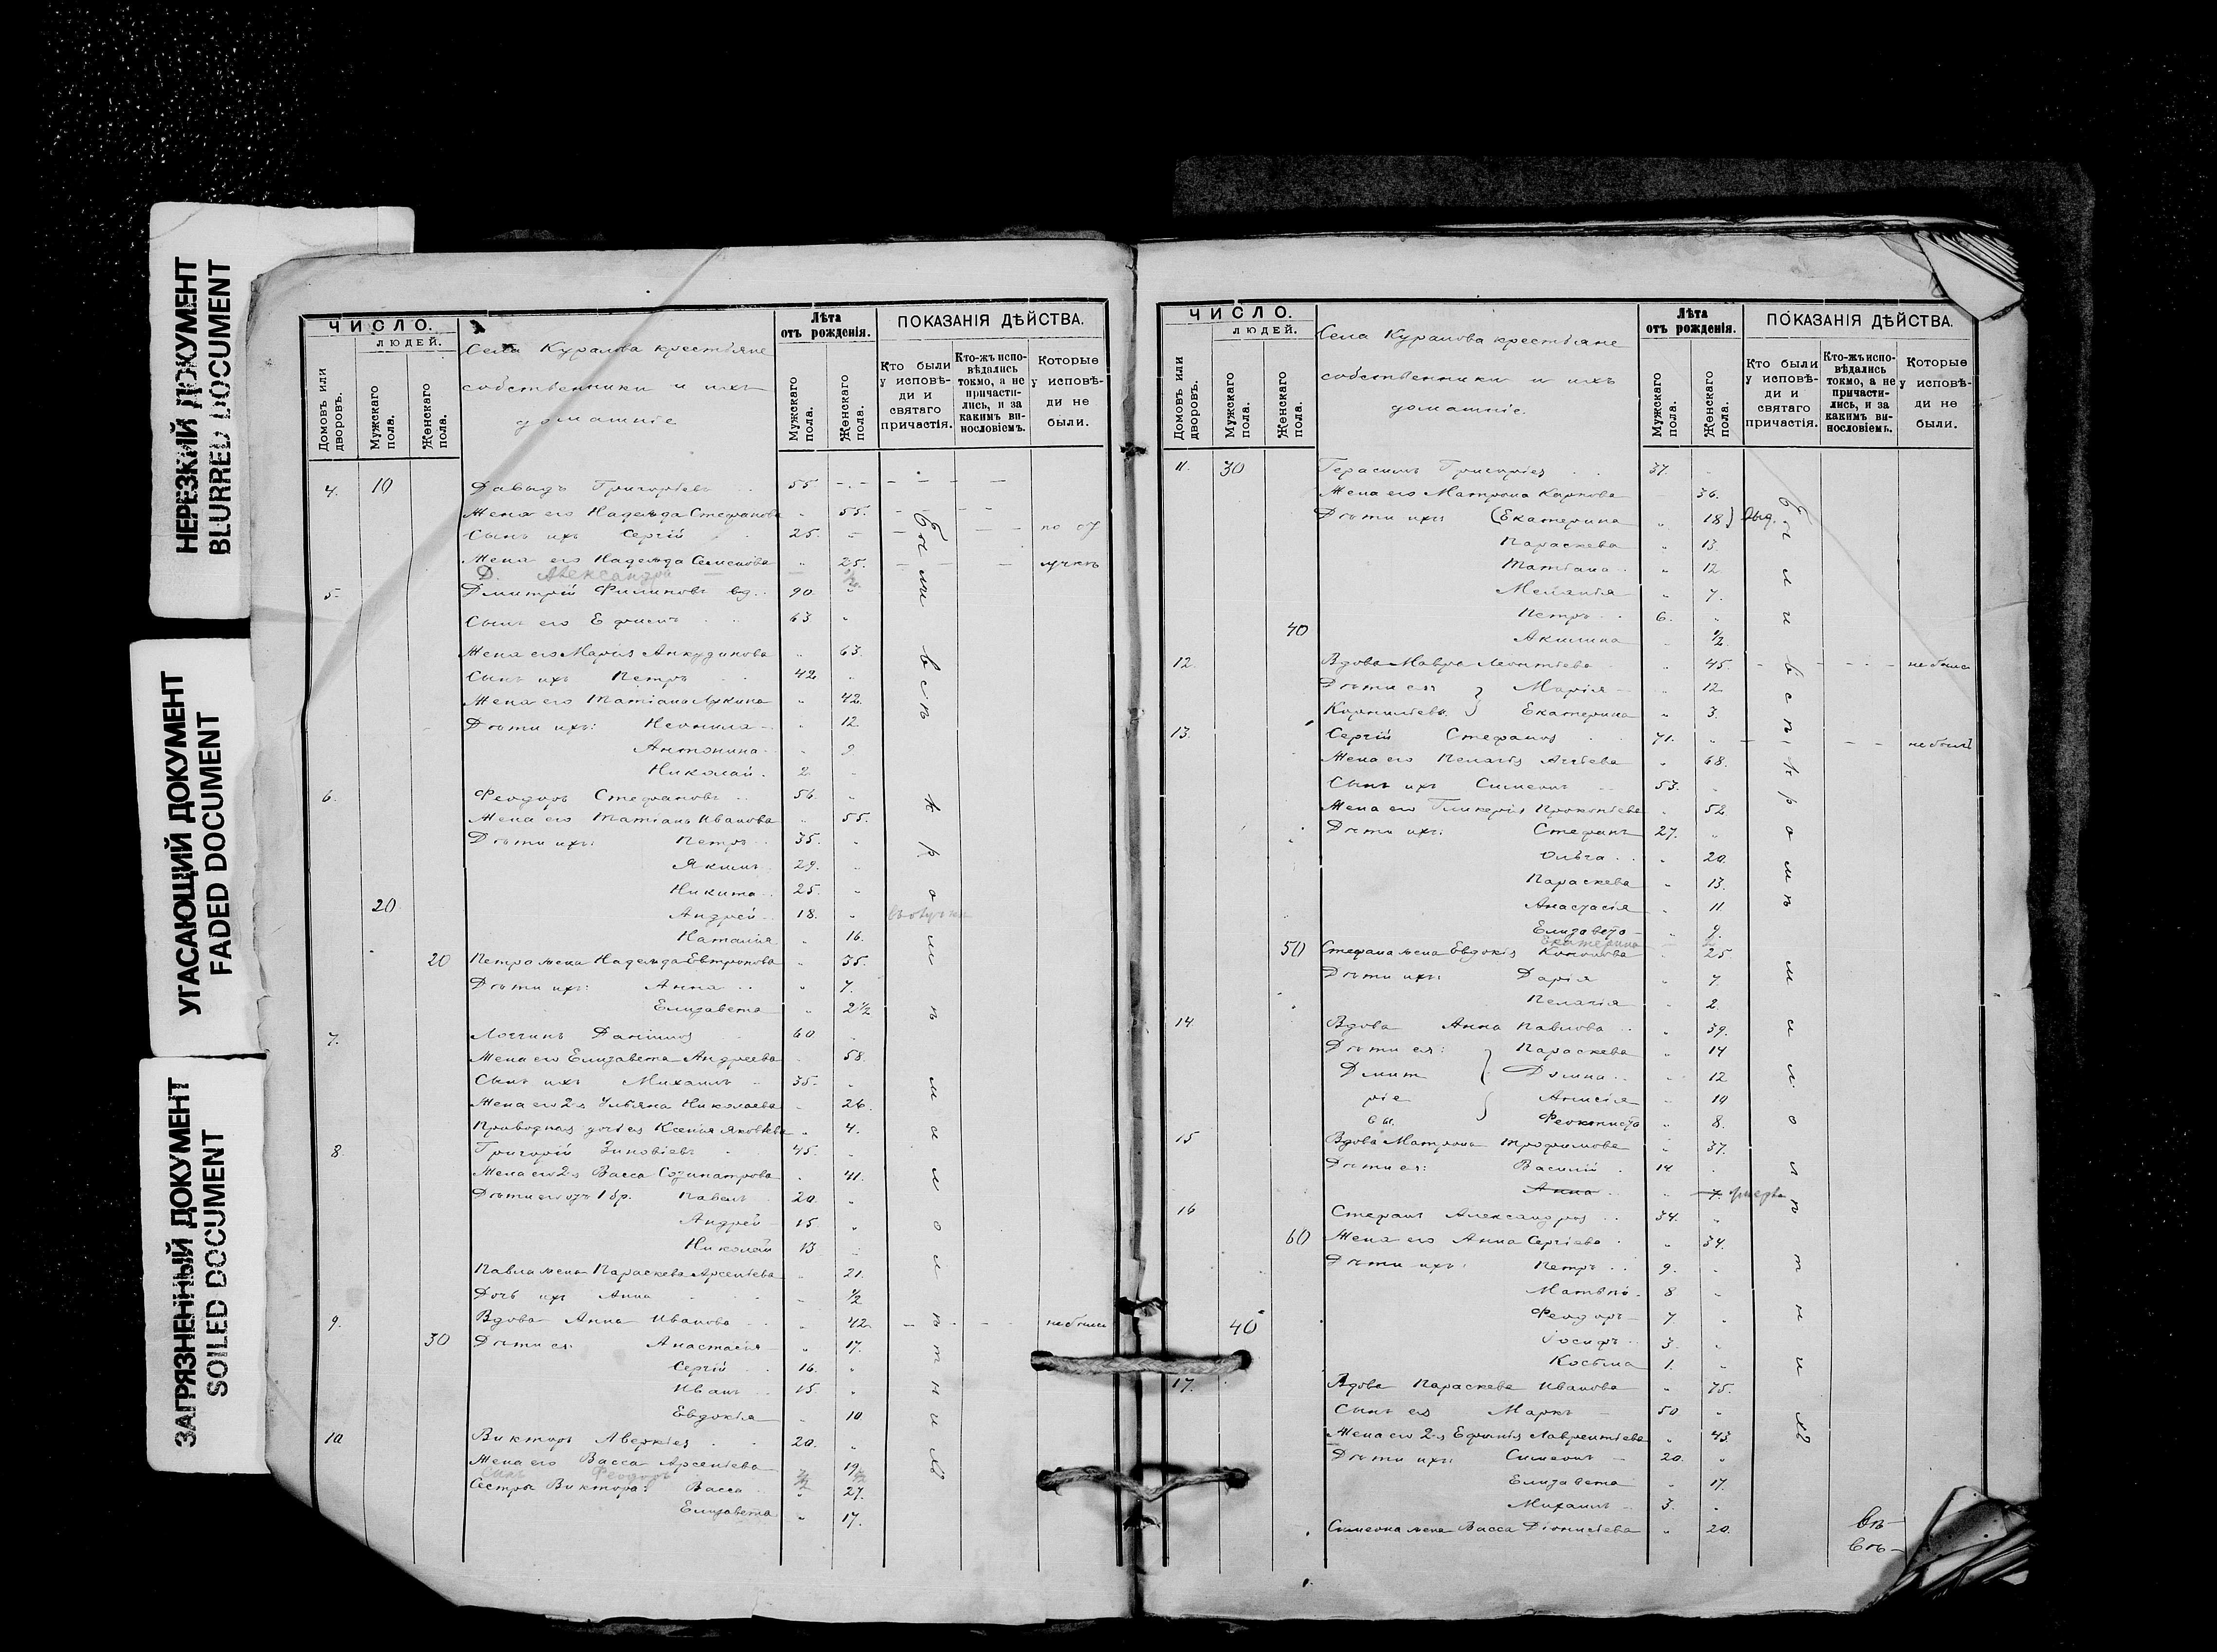 НЕРЕЗКИЙ ДОКУМЕНТ
BLURRED DOCUMENT
УГАСАЮЩИЙ ДОКУМЕНТ
FADED DOCUMENT
ЗАГРЯЗНЕННЫЙ ДОКУМЕНТ
SOILED DOCUMENT
ЧИСЛО.
ЛЮДЕЙ.
Домовъ или дворовъ.
Мужскаго пола.
Женскаго пола.
Села Куралова крестьяне
собственники и ихъ
домашніе
Лѣта отъ рожденія.
Мужскаго пола.
Женскаго пола.
ПОКАЗАНІЯ ДѢЙСТВА.
Кто были у исповѣди и святаго причастія.
Кто-жъ исповѣдались токмо, а не причастились, и за какимъ винословіемъ.
Которые у исповѣди не были.
4. 10 Давыдъ Григорьевъ 55
Жена его Надежда Стефанова 55.
Сынъ ихъ Сергій 25.
Жена его Надежда Семенова 25.
Д. Александра
5. Дмитрій Филиповъ вд. 90
Сынъ его Ефимъ 63
Жена его Марія Анкудинова 63.
Сынъ ихъ Петръ 42
Жена его Татіана 42
Дѣти ихъ: Неонила 12
Антонина 9
Николай 2
6. Феодоръ Стефановъ 56.
Жена его Татіана Иванова 55.
Дѣти ихъ: Петръ 35.
Якимъ 29.
Никита 25.
20 Андрей 18.
Наталия 16.
20 Петра жена Надежда Евтропова 35.
Дѣти ихъ: Анна 7.
Елизавета 2½
7. Логгинъ Даніиловъ 60.
Жена его Елизавета Андреева 58.
Сынъ ихъ Михаилъ 35.
Жена его 2-я Ульяна Николаева 26.
Приводная дочь ея Ксенія Яковлева 4.
8 Григорій Зиновіевъ 45.
Жена его 2-я Васса Созипатрова 41.
Дѣти его отъ 1 бр. Павелъ 20.
Андрей 15
Николай 13
Павла жена Параскева Арсеньева 21.
Дочь ихъ Анна ½
9. Вдова Анна Иванова 42. не была
30 Дѣти ея: Анастасія 17.
Сергій 16.
Иванъ 15.
Евдокія 10
10 Викторъ Аверкіевъ 20.
Жена его Васса Арсеньева 19
Сынъ Феодоръ
Сестры Виктора: Васса 27.
Елизавета 17.
Были всѣ кромѣ малолѣтнихъ
ЧИСЛО.
ЛЮДЕЙ.
Домовъ или дворовъ.
Мужскаго пола.
Женскаго пола.
Села Куралова крестьяне
собственники и ихъ
домашніе.
Лѣта отъ рожденія.
Мужскаго пола.
Женскаго пола.
ПОКАЗАНІЯ ДѢЙСТВА.
Кто были у исповѣди и святаго причастія.
Кто-жъ исповѣдались токмо, а не причастились, и за какимъ винословіемъ.
Которые у исповѣди не были.
11. 30 Герасимъ Григорьевъ 37
Жена его Матрона Карпова 36.
Дѣти ихъ: (Екатерина 18) выд.
Параскева 13.
Татіана 12
Меланья 7.
Петръ 6.
40 Акилина ½
12. Вдова Мавра Леонтіева 45 не была
Дѣти ея: Марія 12
Корнильевы. Екатерина 3.
13. Сергій Стефановъ 71. не былъ
Жена его Пелагія 68.
Сынъ ихъ Симеонъ 53.
Жена его Гликерія Прокопьева 52
Дѣти ихъ: Стефанъ 27.
Ольга 20
Параскева 13.
Анастасія 11
Елизавета 9.
Екатерина
50 Стефана жена Евдокія Кононова 25
Дѣти ихъ: Дарія 7
Пелагія 2
14. Вдова Анна Павлова 39.
Дѣти ея: Параскева 14
Дмит Домна 12
ріе Анисія 10
вы. Феоктиста 8.
15 Вдова Матрона Трофимова 37.
Дѣти ея: Василій 14
Анна 7. умерла
16 Стефанъ Александровъ 34.
60 Жена его Анна Сергіева 34.
Дѣти ихъ: Петръ 9.
Матвѣй 8
Феодоръ 7
40 Іосифъ 3.
Косьма 1.
17. Вдова Параскева Иванова 75.
Сынъ ея Маркъ 50
Жена его 2-я Ефимія Лаврентіева 43.
Дѣти ихъ: Симеонъ 20.
Елизавета 17.
Михаилъ 3.
Симеона жена Васса Діонисіева 20.
Были всѣ кромѣ малолѣтнихъ